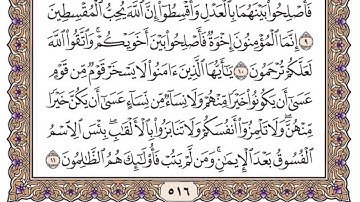 فَأَصْلِحُوا۟ بَيْنَهُمَا بِٱلْعَدْلِ وَأَقْسِطُوٓا۟ ۖ إِنَّ ٱللَّهَ يُحِبُّ ٱلْمُقْسِطِينَ
٩ إِنَّمَا ٱلْمُؤْمِنُونَ إِخْوَةٌ فَأَصْلِحُوا۟ بَيْنَ أَخَوَيْكُمْ ۚ وَٱتَّقُوا۟ ٱللَّهَ
لَعَلَّكُمْ تُرْحَمُونَ ١٠ يَـٰٓأَيُّهَا ٱلَّذِينَ ءَامَنُوا۟ لَا يَسْخَرْ قَوْمٌ مِّن قَوْمٍ
عَسَىٰٓ أَن يَكُونُوا۟ خَيْرًا مِّنْهُمْ وَلَا نِسَآءٌ مِّن نِّسَآءٍ عَسَىٰٓ أَن يَكُنَّ خَيْرًا
مِّنْهُنَّ ۖ وَلَا تَلْمِزُوٓا۟ أَنفُسَكُمْ وَلَا تَنَابَزُوا۟ بِٱلْأَلْقَـٰبِ ۖ بِئْسَ ٱلِٱسْمُ
ٱلْفُسُوقُ بَعْدَ ٱلْإِيمَـٰنِ ۚ وَمَن لَّمْ يَتُبْ فَأُو۟لَـٰٓئِكَ هُمُ ٱلظَّـٰلِمُونَ ١١
٥١٦